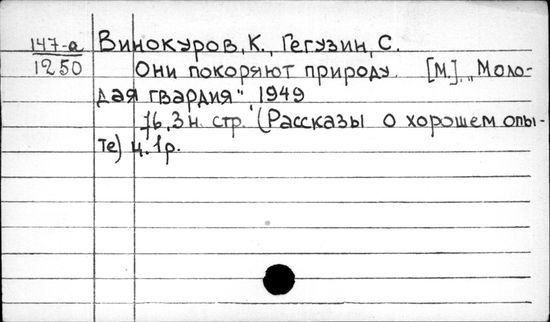 147-а Винокуров, К., Гегузин, С.
1250 Они покоряют природу. [М.] „Моло-
дая гвардия" 1949
76, 3 н. стр. (Рассказы о хорошем опы-
те) ц. 1 р.